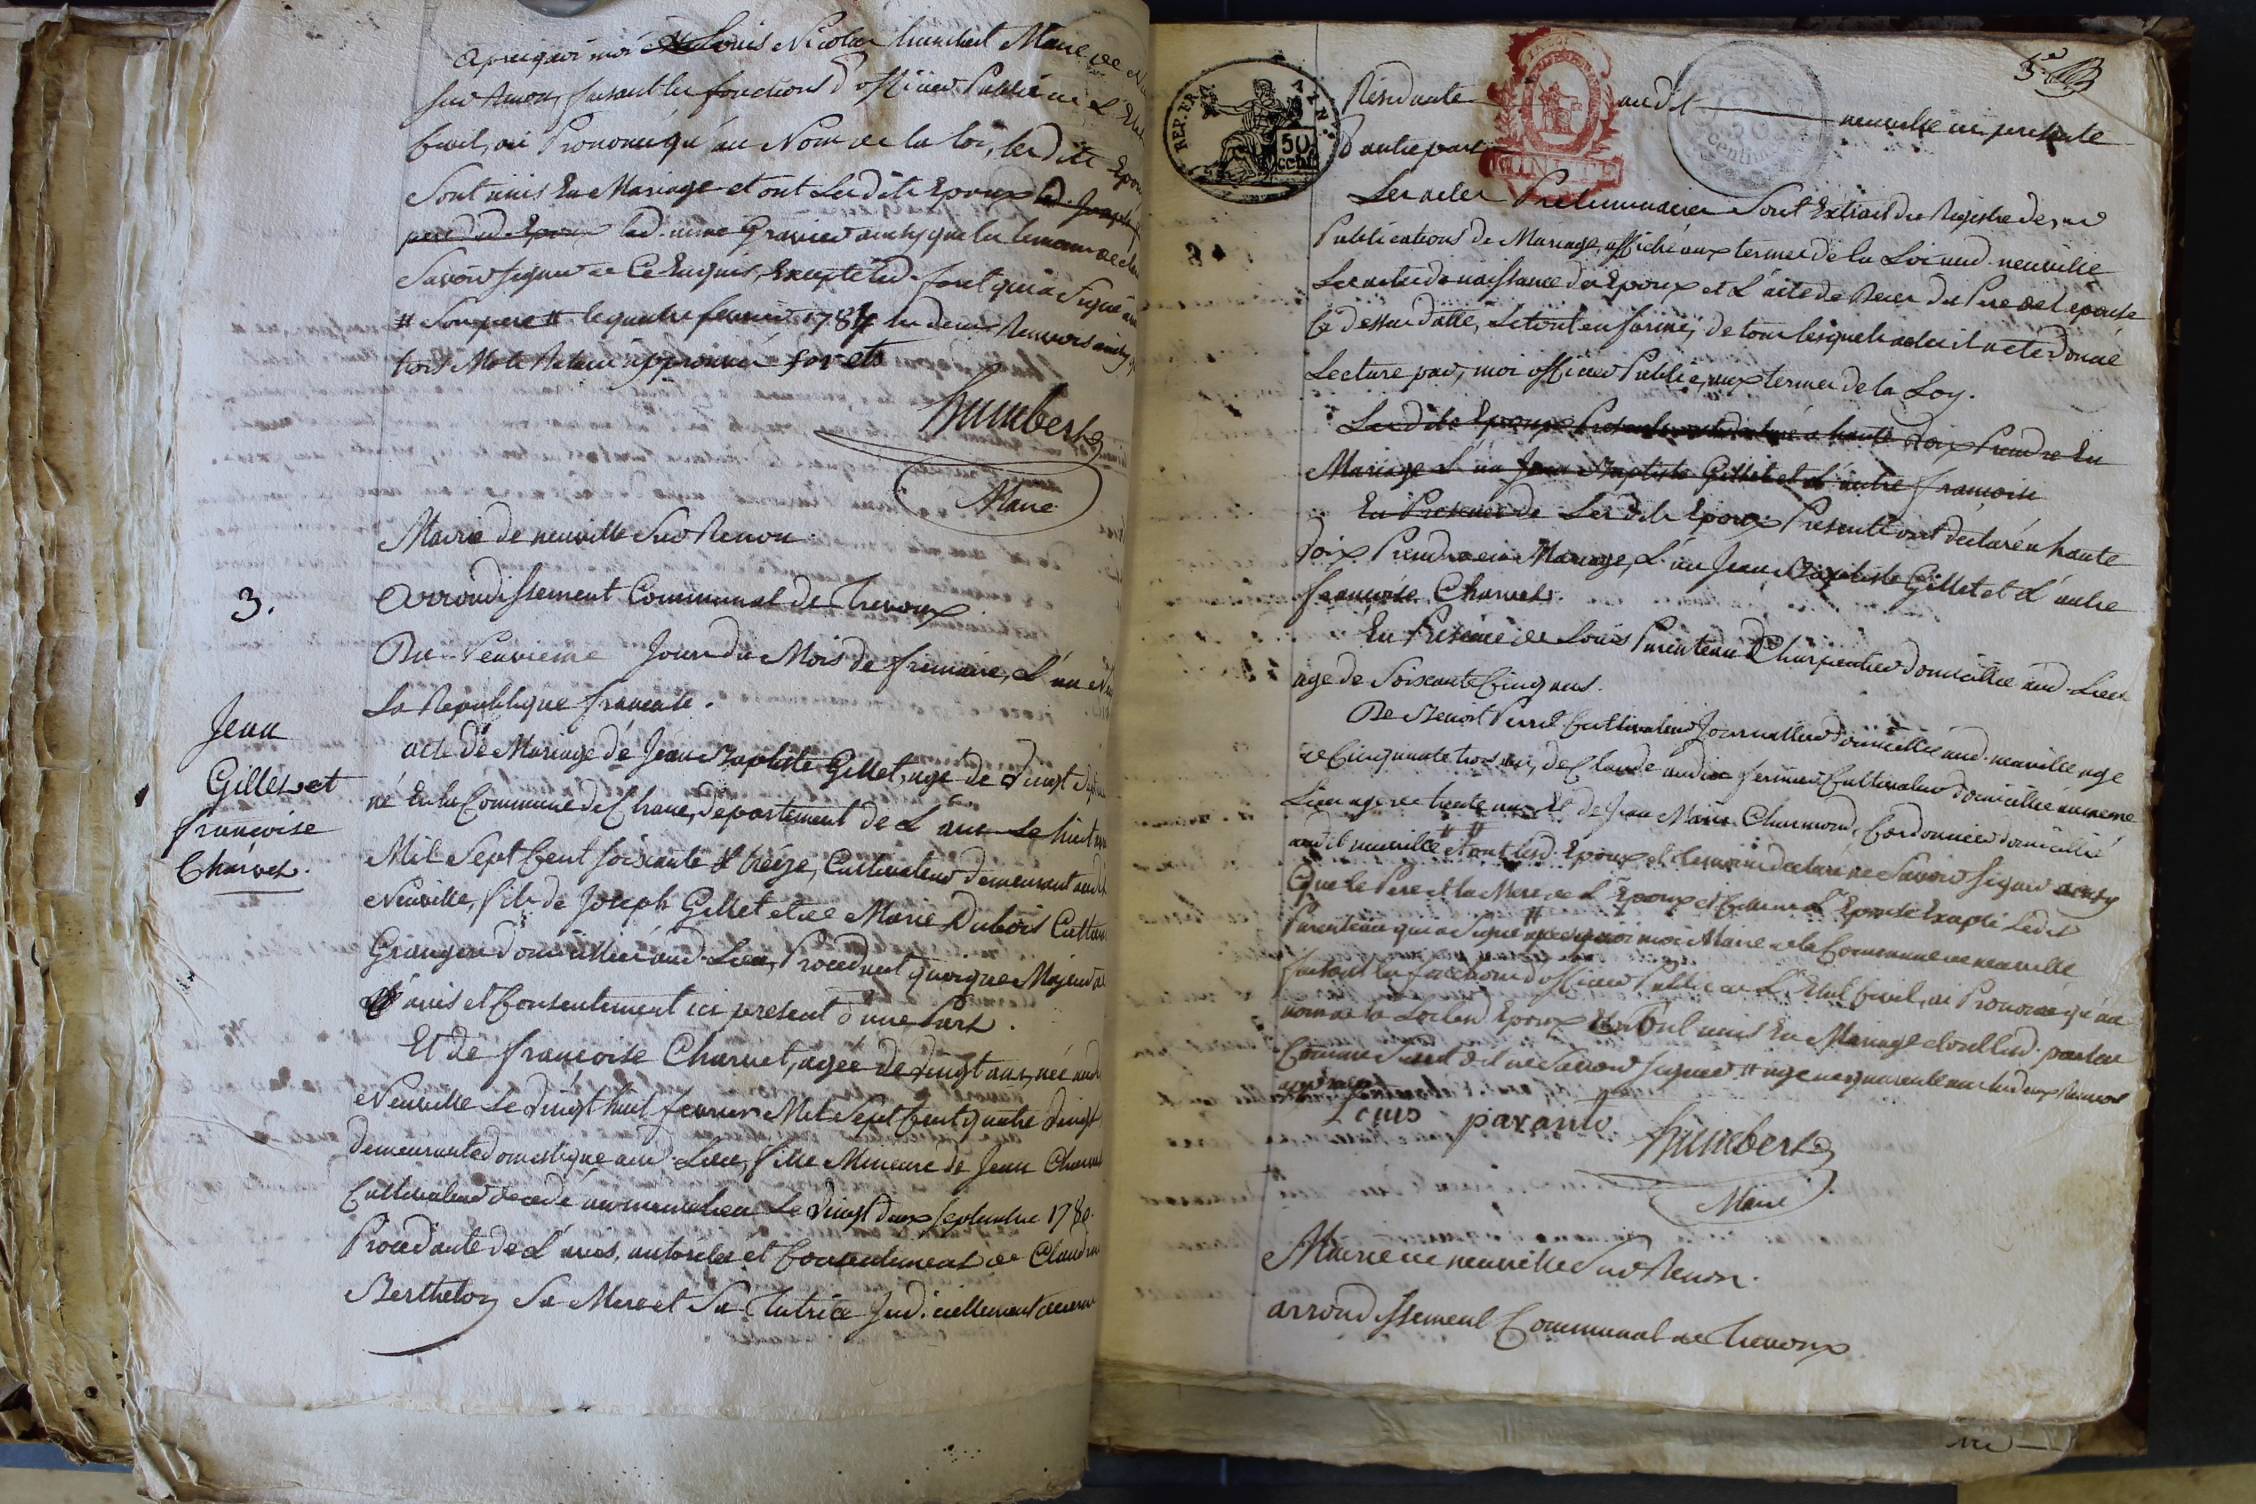 Apres quoi moi Louis Nicolas humbert Maire de
sur Renon, faisant les fonctions d'officier Public de L'
Civil, ai Prononcé qu'au Nom de la loi, lesdits Epoux
Sont unis En Mariage et ont Lesdits Epoux led. Joseph
pere dud. Epoux lad. mere Gravier ainsy que les temoins declaré
Savoir signer de Ce Enquis, Excepté led. qui a Signé
# Son pere # le quatre fevrier 1784 les deux Renvois ainsy
trois Mots Rature approuvé
humbert
Maire
Mairie de neuville Sur Renon
3.
Arrondissement Communal de Trevoux
Du Neuvieme Jour du Mois de frimaire, L'an
La Republique francaise.
Jean
Gillet et
françoise
Charvet.
acte de Mariage de Jean Baptiste Gillet, age de vingt sept
né En la Commune de Chane, departement de L'ain Le huit
Mil Sept Cent soixante & treize, Cultivateur demeurant audit
Neuville, fils de Joseph Gillet et de Marie Dubois
Grangers domiciliés aud. Lieu, Procedant quoique Majeur de
L'avis et Consentement ici present d'une Part.
Et de françoise Charvet, agée de vingt ans, née aud
Neuville Le vingt huit fevrier Mil Sept Cent quatre vingt
demeurante domestique aud. Lieu, fille Mineure de Jean Charvet
Cultivateur decedé au meme lieu Le vingt deux septembre 178
Procedante de L'avis, autorité et Consentement de Claudine
Berthelon Sa Mere et Sa Tutrice Judiciellement
5e
REP. FR.
50
cent
MINUTE
centimes
Residante audit neuville ici presente
d'autre part
Les actes Preliminaires Sont Extraits du Registre des
Publications de Mariage, affiché aux termes de la Loi aud. neuville
Les actes de naissance des Epoux et L'acte de Deces du Pere de L'epouse
Ci dessus datté, Le tout en forme, de tous lesquels actes il a eté donné
Lecture par, moi officier Public, aux termes de la Loy.
Lesdits Epoux Presents ont declaré a haute voix Prendre En
Mariage L'un Jean Baptiste Gillet et L'autre françoise
En Presence de Lesdits Epoux Presents ont declaré a haute
voix Prendre en Mariage, L'un Jean Baptiste Gillet et L'autre
françoise Charvet.
En Presence de Louis Parenteau Charpentier domicilié aud. Lieu
age de Soixante Cinq ans.
De Benoit Cultivateur Journallier domicilié aud. neuville age
de Cinquante trois ans, de Claude fermier Cultivateur domicilié au meme
Lieu age de trente ans Et de Jean Marie Charmond, Cordonnier domicilié
audit neuville # et ont lesd. Epoux et temoins declaré ne Savoir Signer ainsy
que le Pere et la Mere de L'Epoux et Celle de L'Epouse Excepté Ledit
Parenteau qui a Signé # apres quoi moi Maire de la Commune de neuville
faisant les fonctions d'officier Public de L'Etat Civil, ai Prononcé qu'au
nom de la Loi lesd. Epoux Sont unis En Mariage
ne Savoir Signer # age de quarante ans les deux Renvois
approuvés
Louis paranto
humbert
Maire
Mairie de neuville Sur Renon.
arrondissement Communal de Trevoux